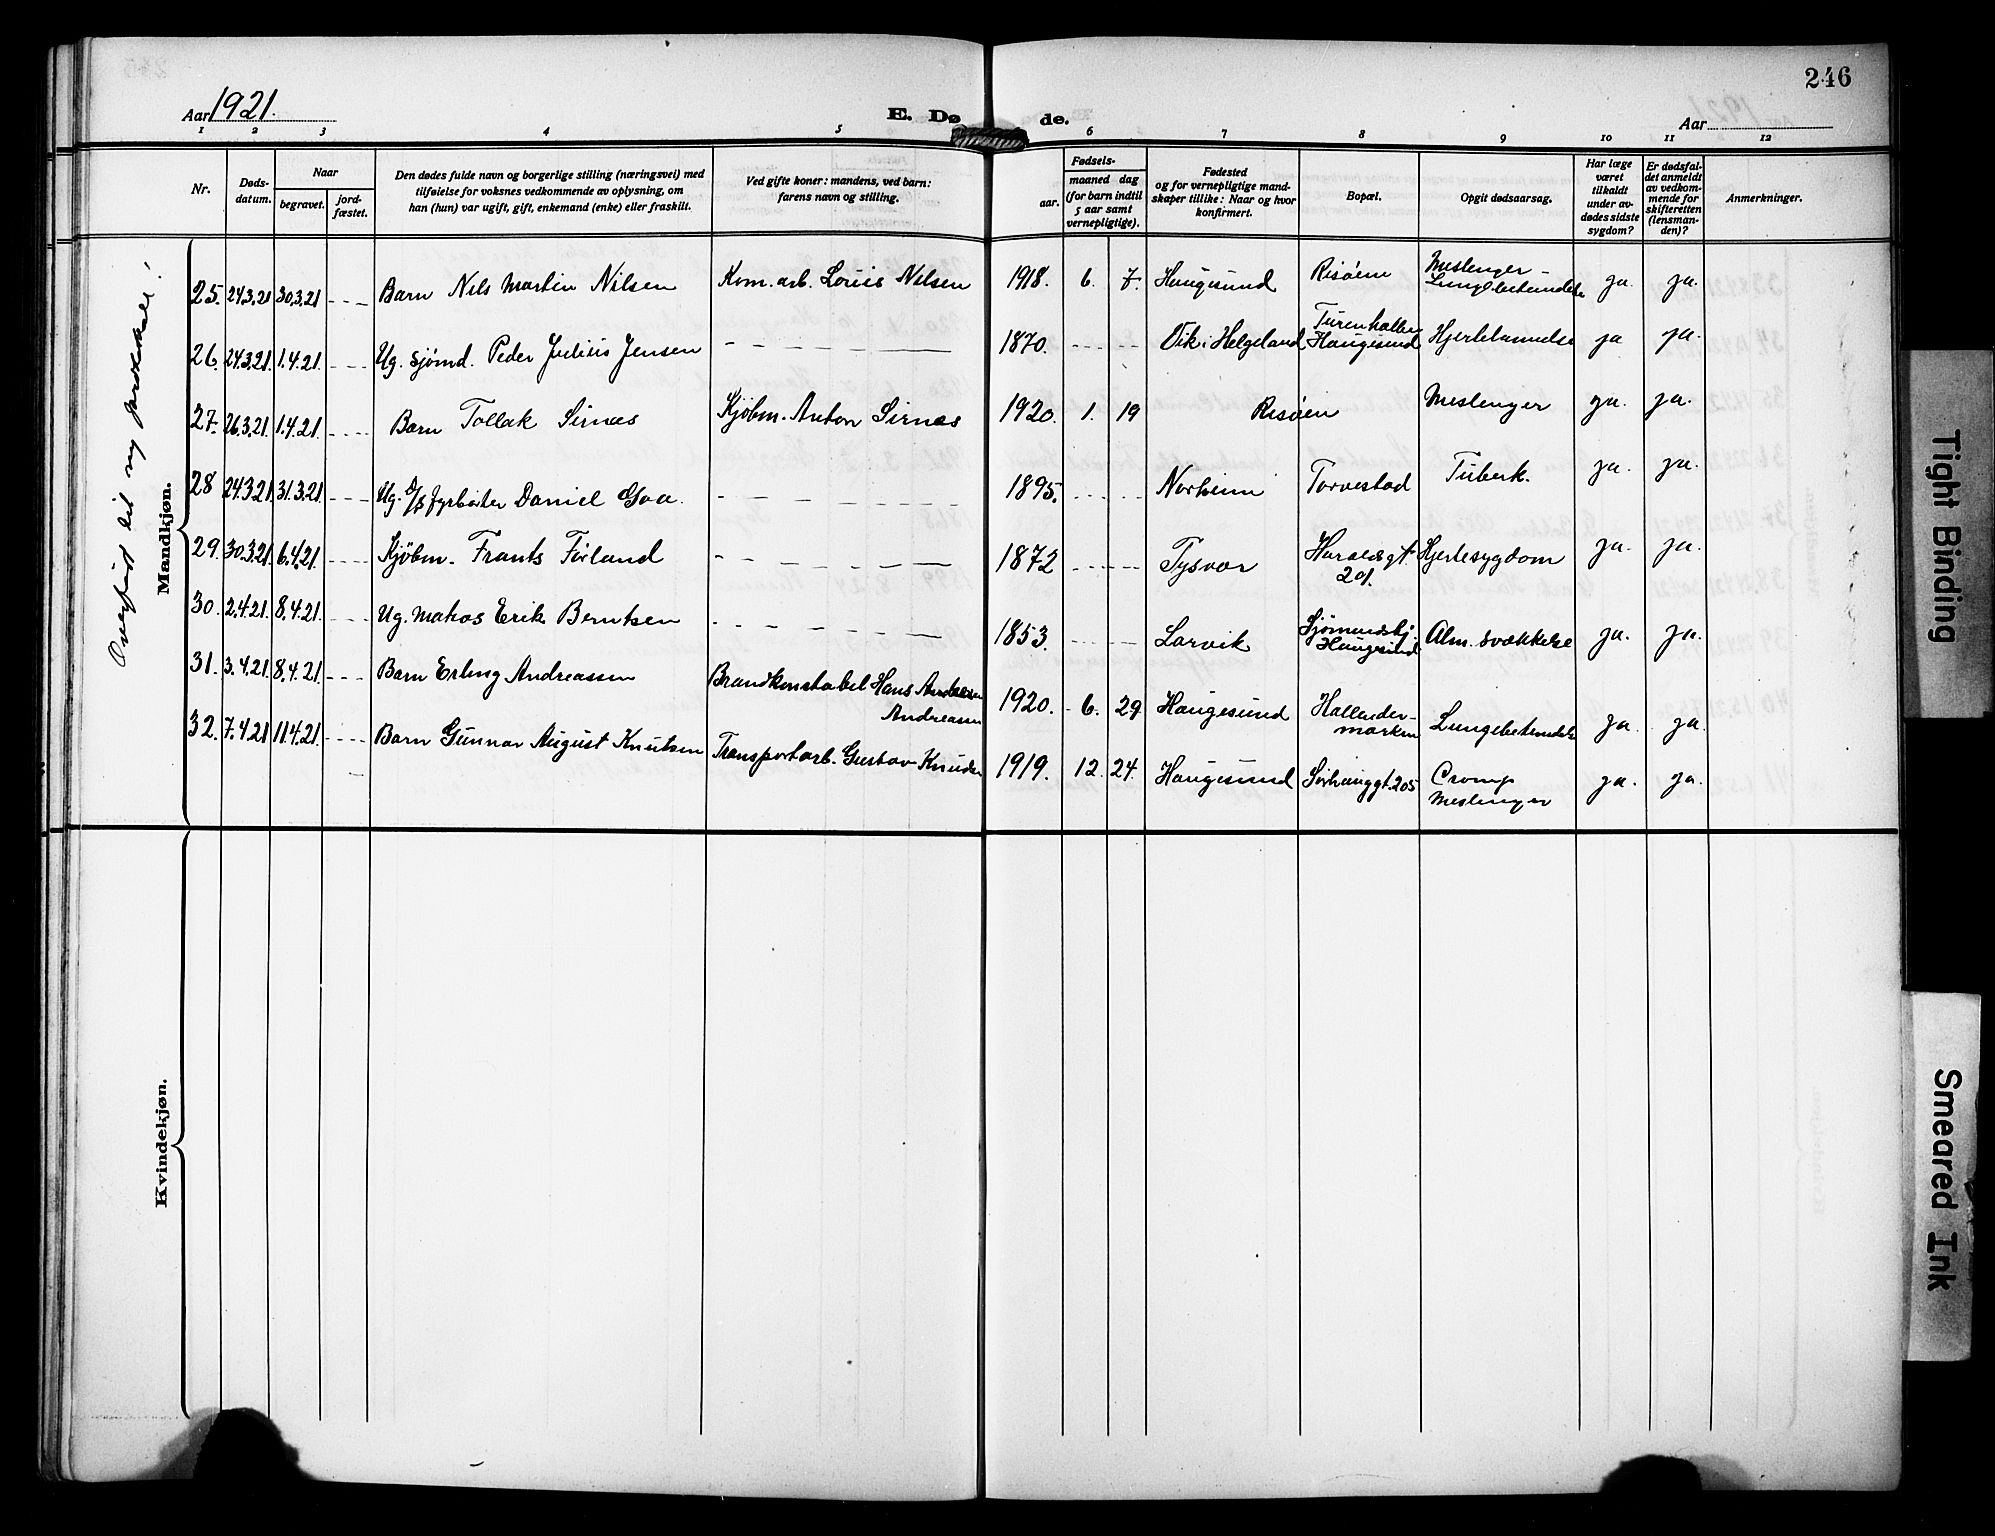 246
Aar 1921.
E. Dø de.
Aar
1 2 3 4 5 6 7 8 9 10 11 12
Nr.
Døds-
datum.
Naar
begravet.
jord-
fæstet.
Den dødes fulde navn og borgerlige stilling (næringsvei) med
tilføielse for voksnes vedkommende av oplysning, om
han (hun) var ugift, gift, enkemand (enke) eller fraskilt.
Ved gifte koner: mandens, ved barn:
farens navn og stilling.
Fødsels-
aar.
maaned dag
(for barn indtil
5 aar samt
vernepligtige).
Fødested
og for vernepligtige mand-
skaper tillike: Naar og hvor
konfirmert.
Bopæl.
Opgit dødsaarsag.
Har læge
været
tilkaldt
under av-
dødes sidste
sygdom?
Er dødsfal-
det anmeldt
av vedkom-
mende for
skifteretten
(lensman-
den)?
Anmerkninger.
Overført til ny protokol!
Mandkjøn.
25. 24.3.21 30.3.21 Barn Nils Martin Nilsen Kom. arb. Louis Nilsen 1918. 6. 7. Haugesund Risöen Meslinger- ja. ja.
Lungebetændelse
26. 24.3.21. 1.4.21. Ug. sjömd. Peder Julius Jensen 1870. Vik i Helgeland Haugesund Hjertelammelse ja ja.
27. 26.3.21. 1.4.21. Barn Tollak Sirnæs Kjöbm. Anton Sirnæs 1920. 1. 19 Risöen Meslinger ja. ja.
28 24.3.21 31.3.21. Ug. D/S fyrböter Daniel Goa. 1895. Norheim Torvestad Tuberk. ja. ja.
29. 30.3.21. 6.4.21. Kjöbm. Frants Förland 1872 Tysvær Haraldsgt. Hjertesygdom ja. ja.
201.
30. 2.4.21. 8.4.21. Ug. Matros Erik Berntsen 1853. Larvik Sjömandshj. Alm. svækkelse ja. ja.
Haugesund
31. 3.4.21. 8.4.21. Barn Erling Andreassen Brandkonstabel Hans 1920. 6. 29 Haugesund Hallender- Lungebetændelse ja. ja.
Andreassen marken
32. 7.4.21 11.4.21. Barn Gunnar August Knutsen Transportarb. Gustav Knudsen 1919. 12. 24. Haugesund Sörhauggt. 205 Croup ja. ja.
Meslinger
Kvindekjøn.
Tight Binding
Smeared Ink